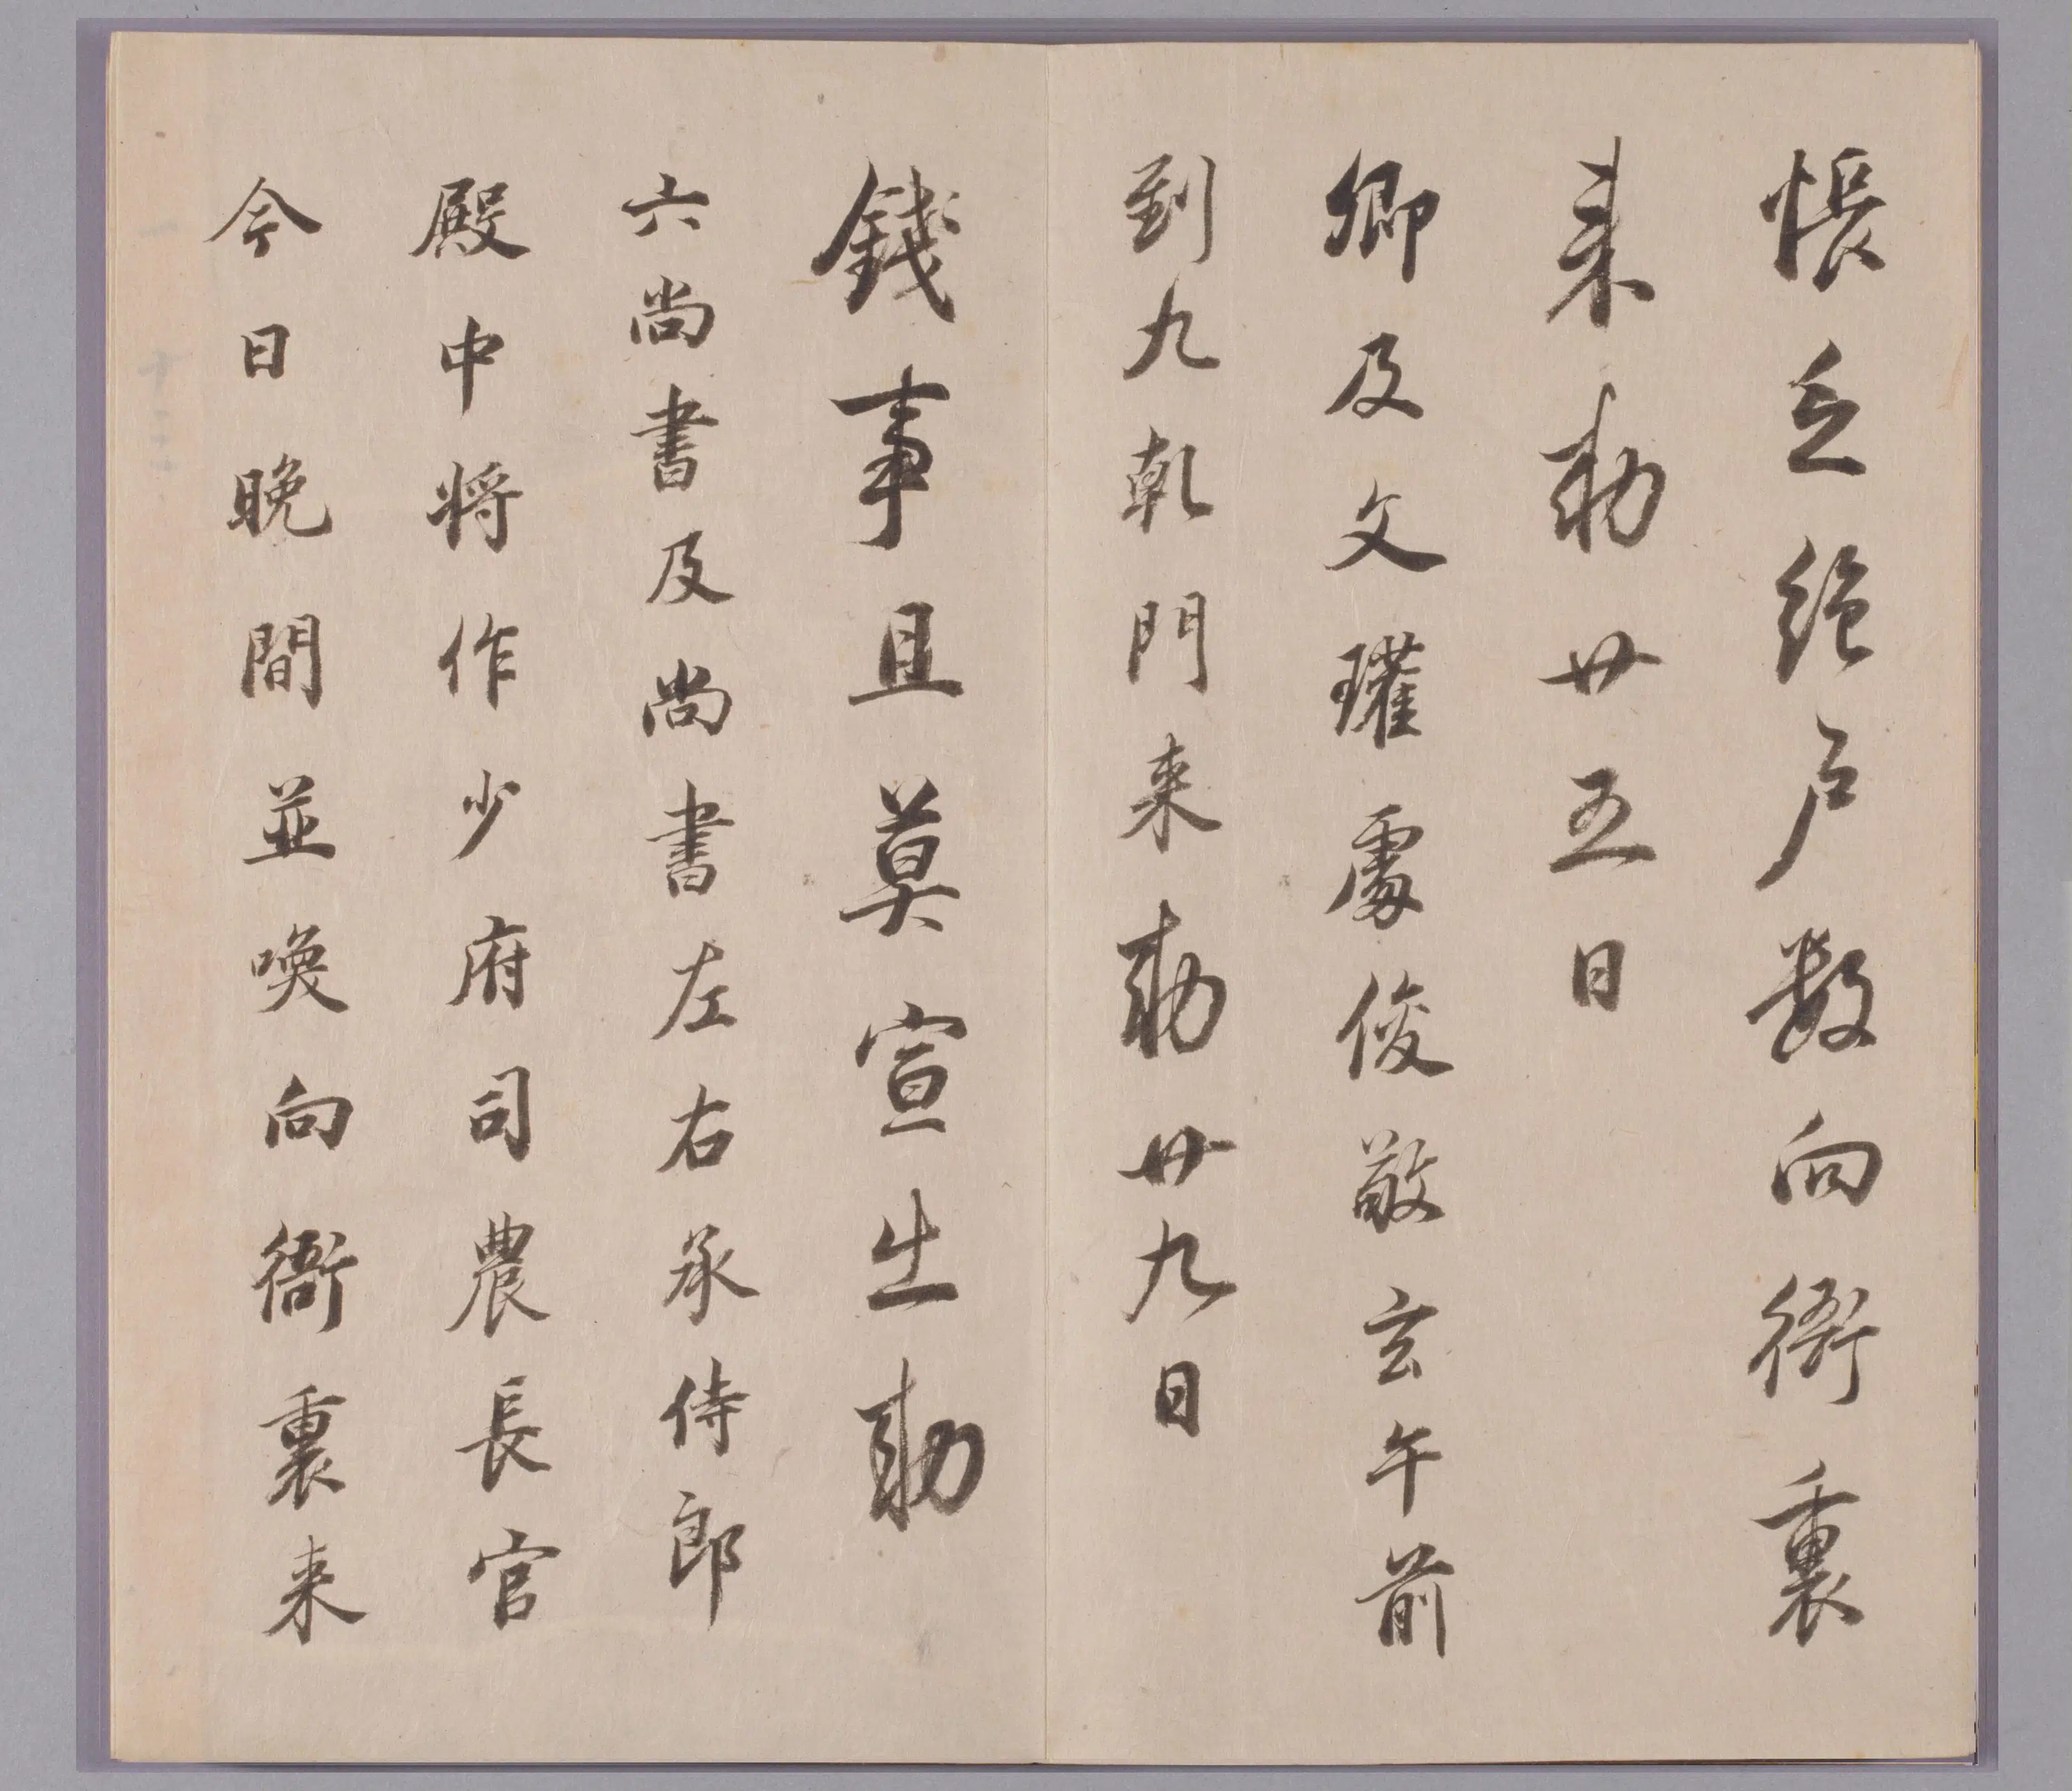 悵之絕戶數向衙裏
来勅廿五日
卿及文瓘處俊敬玄午前
到九乹門来勅廿九日
錢事且莫宣出勅
六尚書及尚書左右承侍郎
殿中将作少府司農長官
今日晚間並喚向衙裏来